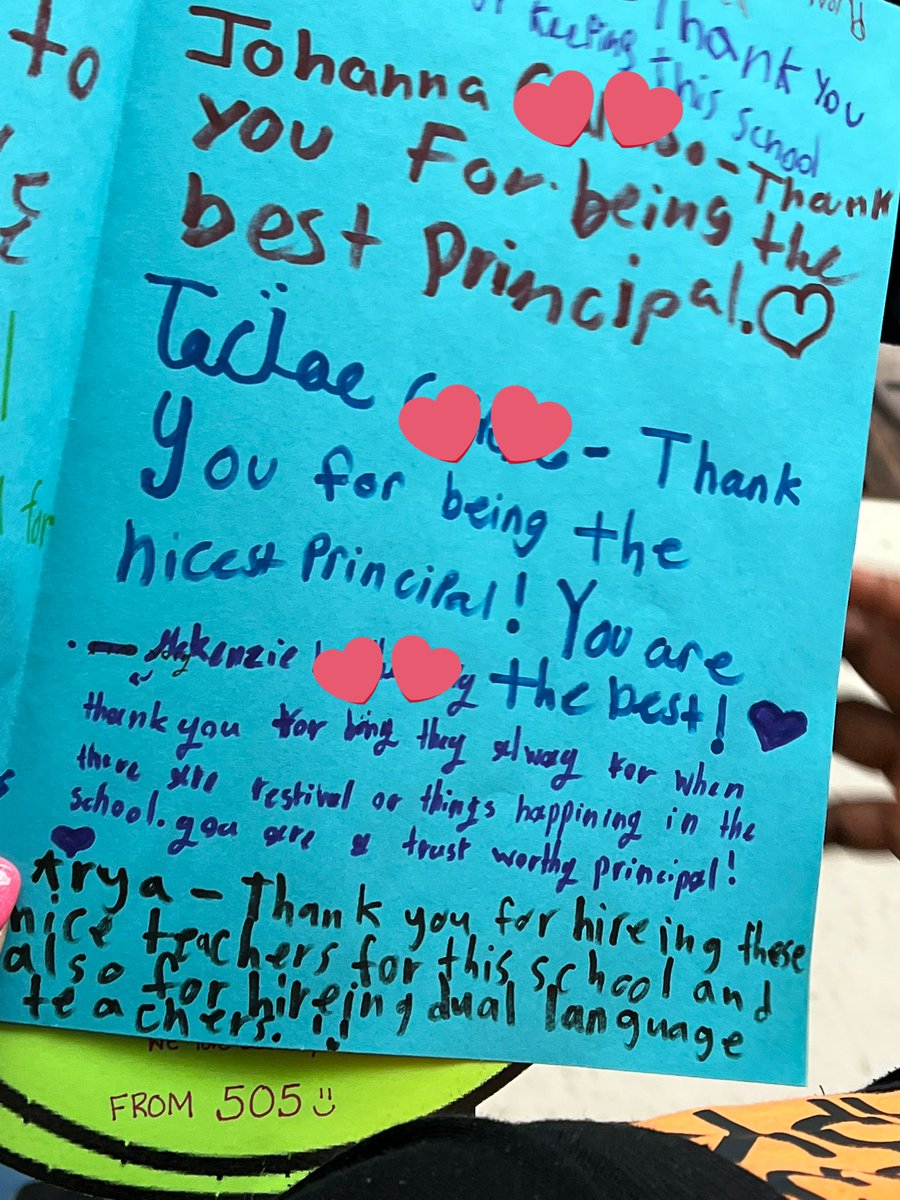 to
Thank You
for keeping this school
Johanna
Thank
you For being the
best principal.
Thank
you for being the
nicest principal! You are
the best!
Mckenzie
thank you for bing they alway for when
there are festival or things happining in the
school. you are a trust worthy principal!
Arya - Thank you for hireing these
nice teachers for this school and
also for hireing dual language
teachers. !!
for
FROM 505